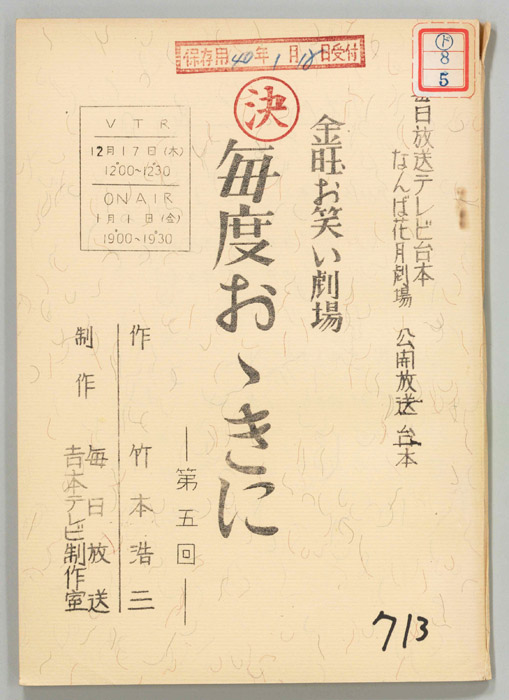 保存用 40年1月18日受付
ト
8
5
毎日放送テレビ台本
なんば花月劇場 公開放送台本
金曜お笑い劇場
決
毎度おゝきに
―第五回―
VTR
12月17日(木)
12°00~12°30
ON AIR
1月1日(金)
19°00~19°30
作 竹本浩三
制作 毎日放送
吉本テレビ制作室
713